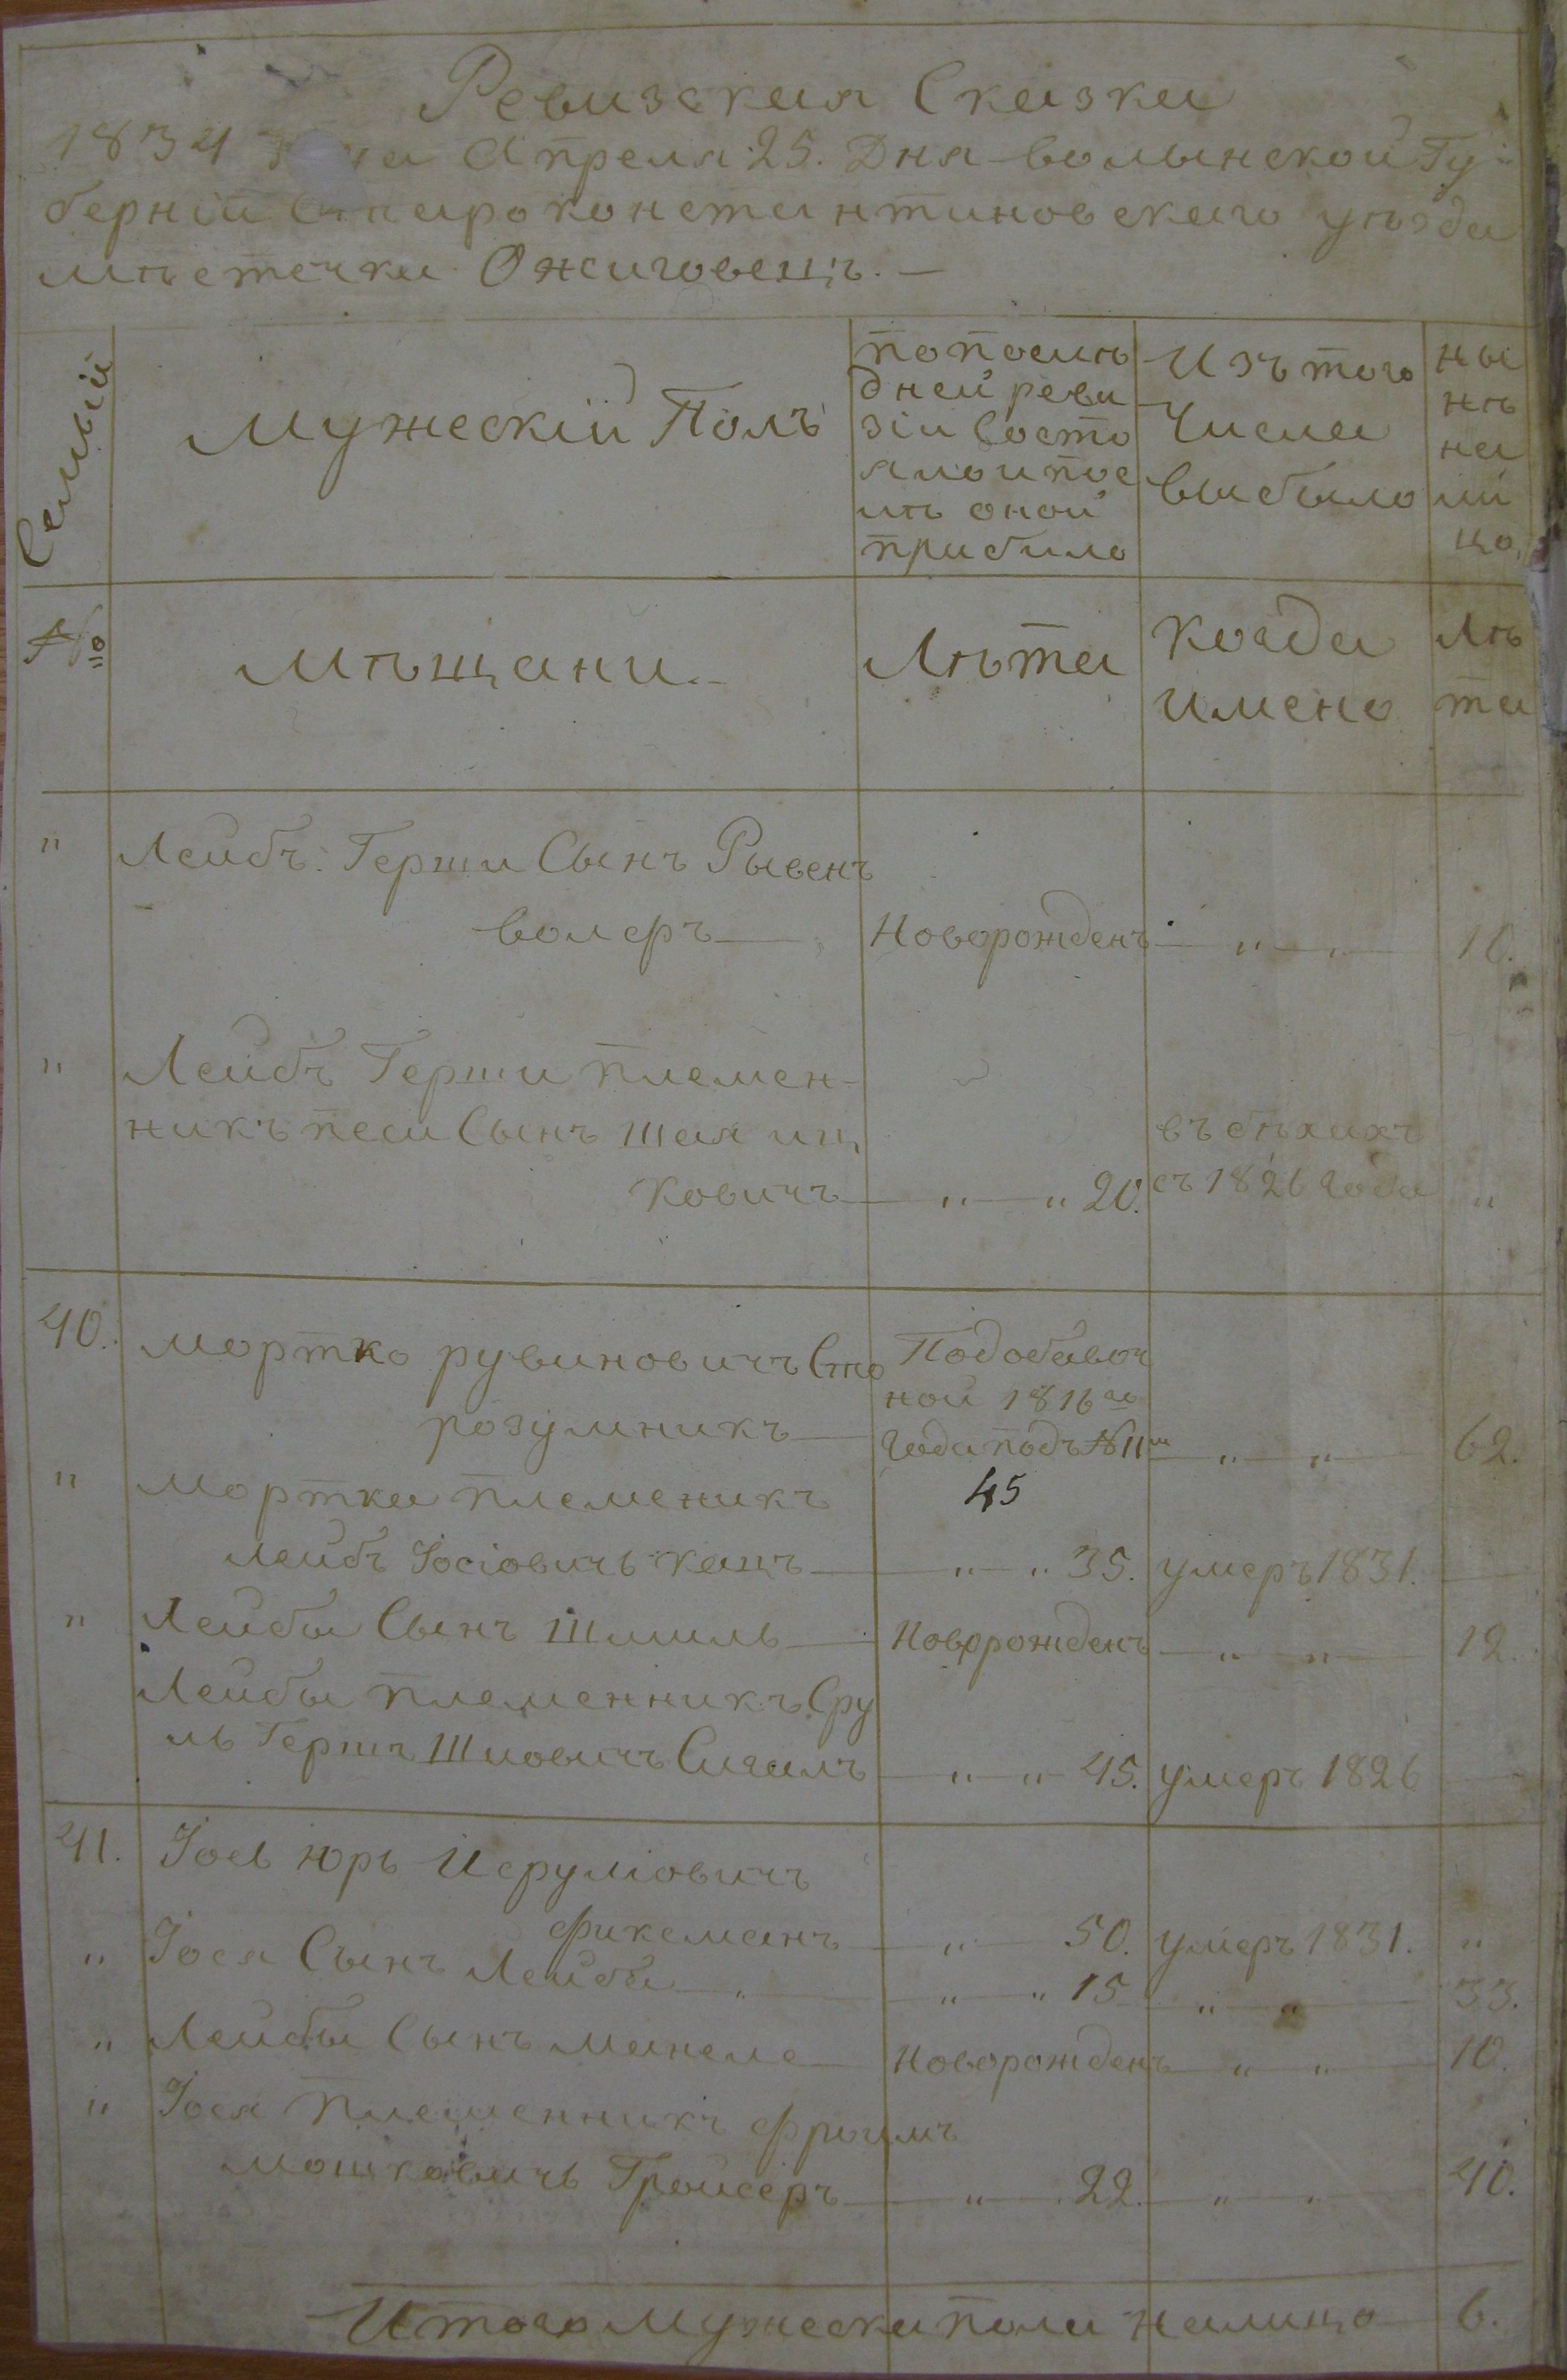 Ревизская Сказка
1834 Апреля 25. Дня волынской Гу-
берніи Староконстантиновскаго уѣзда
мѣстечка Ожиговецъ.—
Семьи
Мужескій Полъ
по послѣ
дней реви
зіи Состо
яло и пос
лѣ оной
прибило
Изъ того
Числа
выбыло
ны
нѣ
на
ли
цо
№
мѣщани.
Лѣта
Когда
имено
Лѣ
та
" Лейбъ Герши Сынъ Рывенъ
волеръ — Новорожденъ — " — " — 10.
" Лейбъ Герши племен-
никъ песи Сынъ Шая иц
въ бѣхахъ
ковичъ — " — " 20. съ 1826 года "
40. мортко рувиновичъ Сто
розумникъ —
Подобавоч
ной 1816 го
года подъ №11м — " — " — 62.
45
" мортка племеникъ
лейбъ Іосіовичь кацъ — " — " 35. умеръ 1831. —
" Лейбы Сынъ Шмиль — Новорожденъ — " — " — 12.
Лейбы племенникъ Сру
ль Гершъ Шиовичъ Сигалъ — " — " 45. умеръ 1826 —
41. Іось юрь Исруліовичъ
фиксманъ — " — 50. умеръ 1831. "
" Іося Сынъ Лейба — " — " — " 15 — " — " — 33.
" Лейбы Сынъ манеле — Новорожденъ — " — " — 10.
" Іося племенникъ фроимъ
мошковичь Гройсеръ — " — 22. — " — " — 40.
Итого мужеска пола налицо 6.